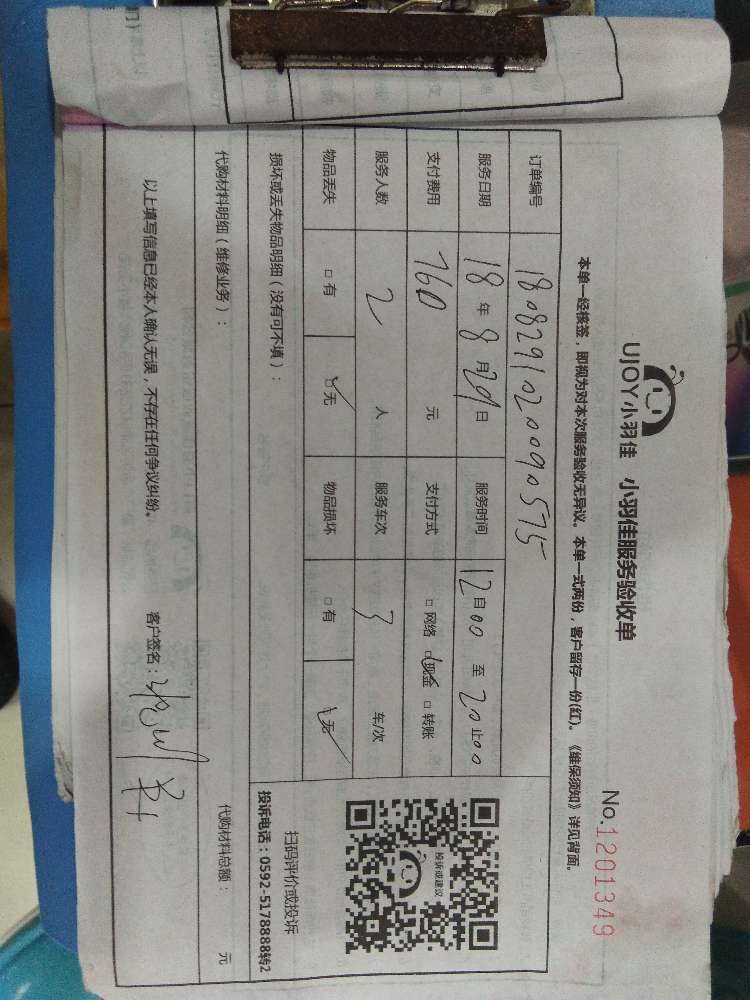 UJOY小羽佳 小羽佳服务验收单
No.1201349
本单一经核签，即视为对本次服务验收无异议。本单一式两份，客户留存一份(红)。《维保须知》详见背面。
订单编号 1808291020090575
服务日期 18年8月29日 服务时间 12自00至20止00
支付费用 760元 支付方式 □网络 □现金 □转账
服务人数 2人 服务车次 3车/次
物品丢失 □有 □无 物品损坏 □有 □无
损坏或丢失物品明细（没有可不填）：
投诉或建议
扫码评价或投诉
投诉电话：0592-5178888转2
代购材料明细（维修业务）： 代购材料总额： 元
以上填写信息已经本人确认无误，不存在任何争议纠纷。 客户签名：